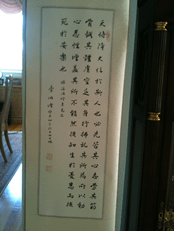 天將降大任於斯人也必先苦其心志勞其筋
骨餓其體膚空乏其身行拂亂其所為所以動
心忍性增益其所不能然後知生於憂患而
死於安樂也